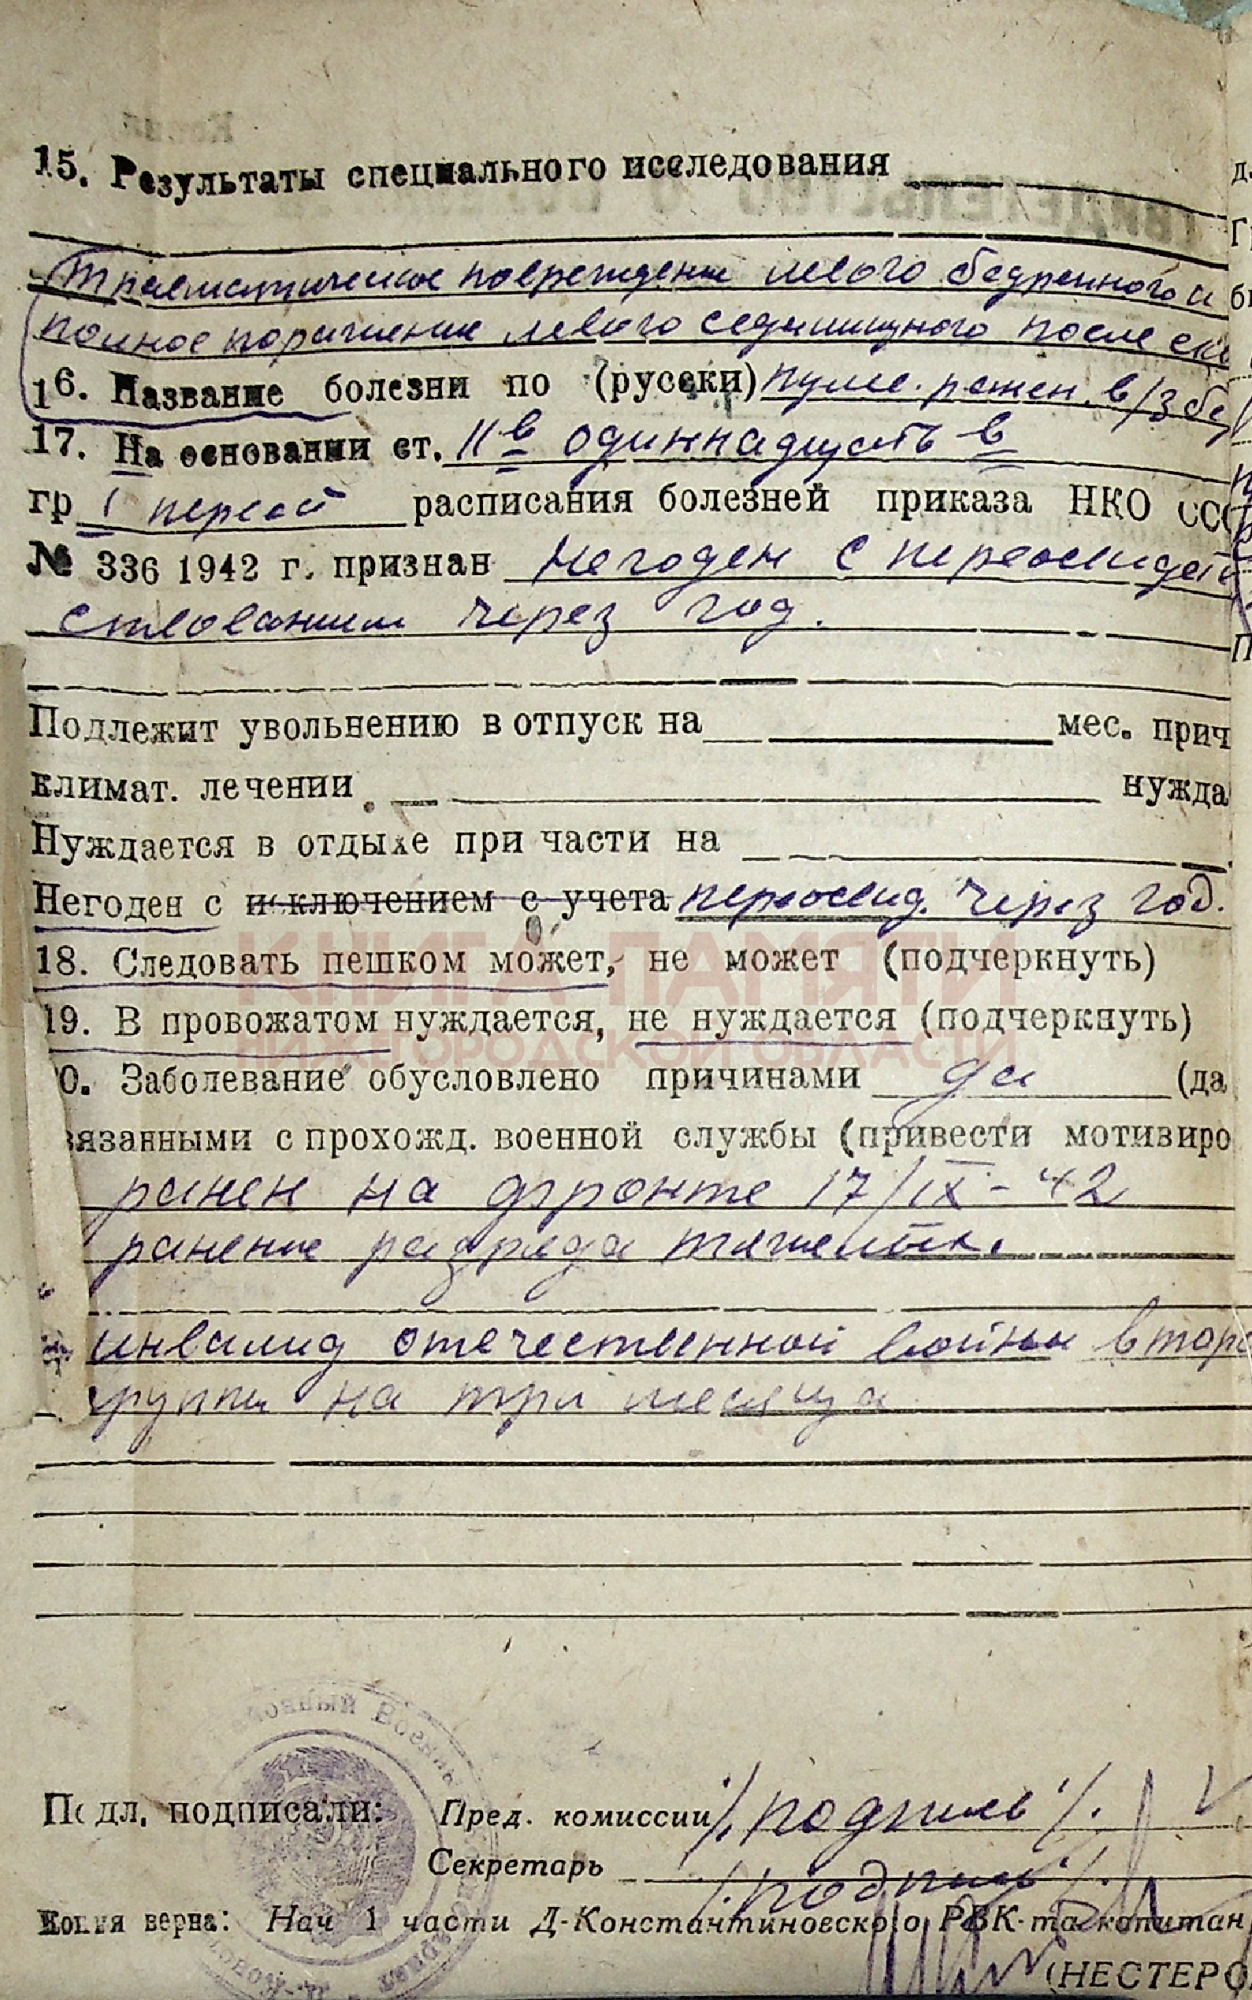 15. Результаты специального исследования
Травматическое повреждение левого бедренного и
полное поражение левого седалищного после
16. Название болезни по (русски) пуле. ранен. в/3 бе
17. На основании ст. 11 в одиннадцать в
гр I первой расписания болезней приказа НКО ССС
№ 336 1942 г. признан Негоден с переосвидетель
ствованием через год.
Подлежит увольнению в отпуск на мес. прич
климат. лечении нужда
Нуждается в отдыхе при части на
Негоден с исключением с учета переосвид. через год.
18. Следовать пешком может, не может (подчеркнуть)
19. В провожатом нуждается, не нуждается (подчеркнуть)
0. Заболевание обусловлено причинами да (да
вязанными с прохожд. военной службы (привести мотивиро
ранен на фронте 17/IX-42
ранение разряда тяжелых.
инвалид отечественной войны второ
группы на три месяца
КНИГА ПАМЯТИ
НИЖЕГОРОДСКОЙ ОБЛАСТИ
Подл. подписали: Пред. комиссии /.подпись./.
Секретарь /.подпись./.
Копия верна: Нач 1 части Д-Константиновского РВК-та капитан
(НЕСТЕРО